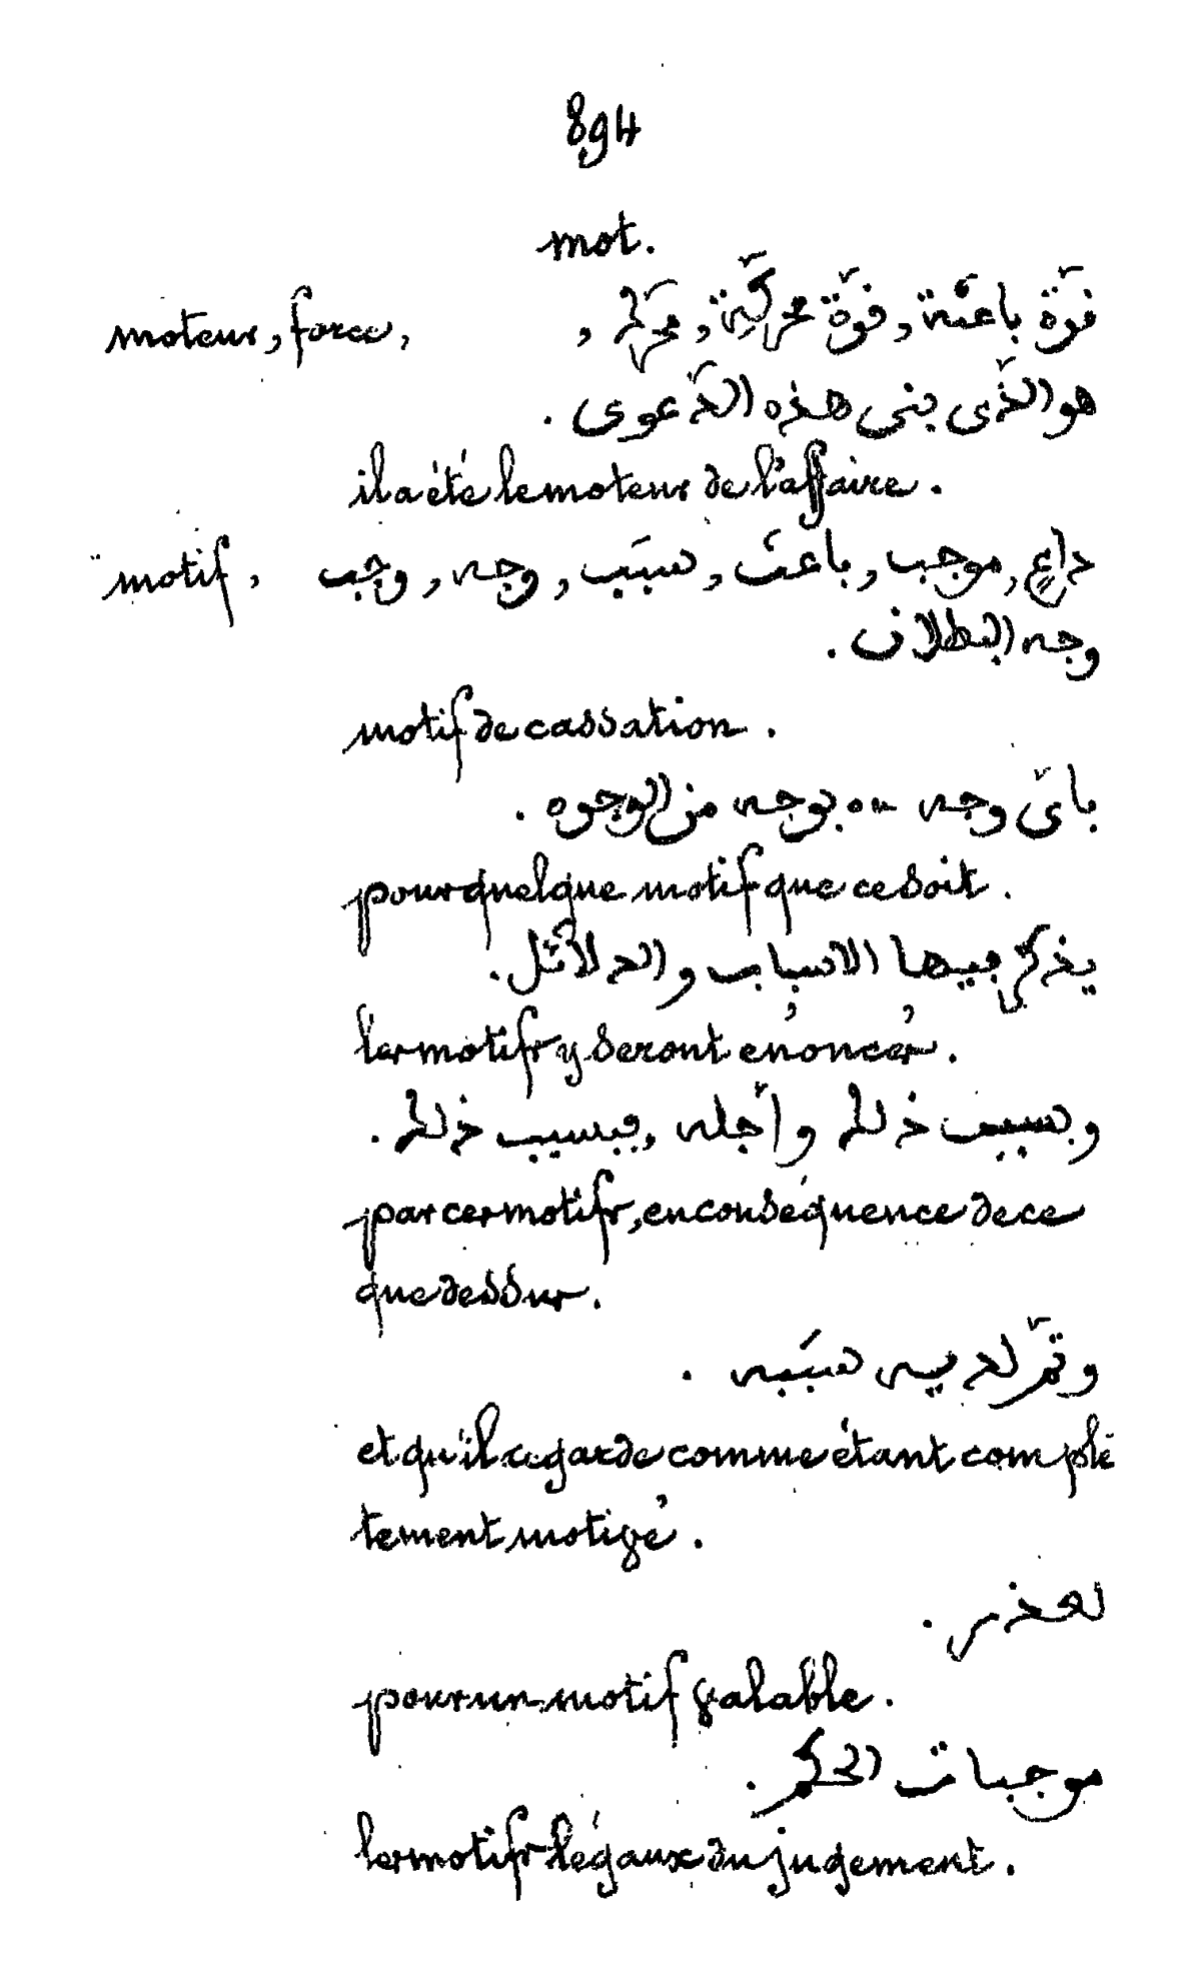 894
mot.
moteur, force, قوّة باعثة, قوّة محرّكيّة, محرّك,
هو الذّى بنى هذه الدّعوى.
il a été le moteur de l'affaire.
motif, داعٍ, موجب, باعث, سبَب, وجه, وجب
وجه البطلان.
motif de cassation.
باىّ وجه بوجه من الوجوه.
pour quelque motif que ce soit.
يذكر فيها الاسباب والدلائل.
les motifs y seront énoncés.
وبسبب ذلك وأجله, فبسبب ذلك.
par ces motifs, en conséquence de ce
que dessus.
وتمّ لديه سبَبه.
et qu'il regarde comme étant complè
tement motivé.
لعذر.
pour un motif valable.
موجبات الحكم.
les motifs légaux du jugement.